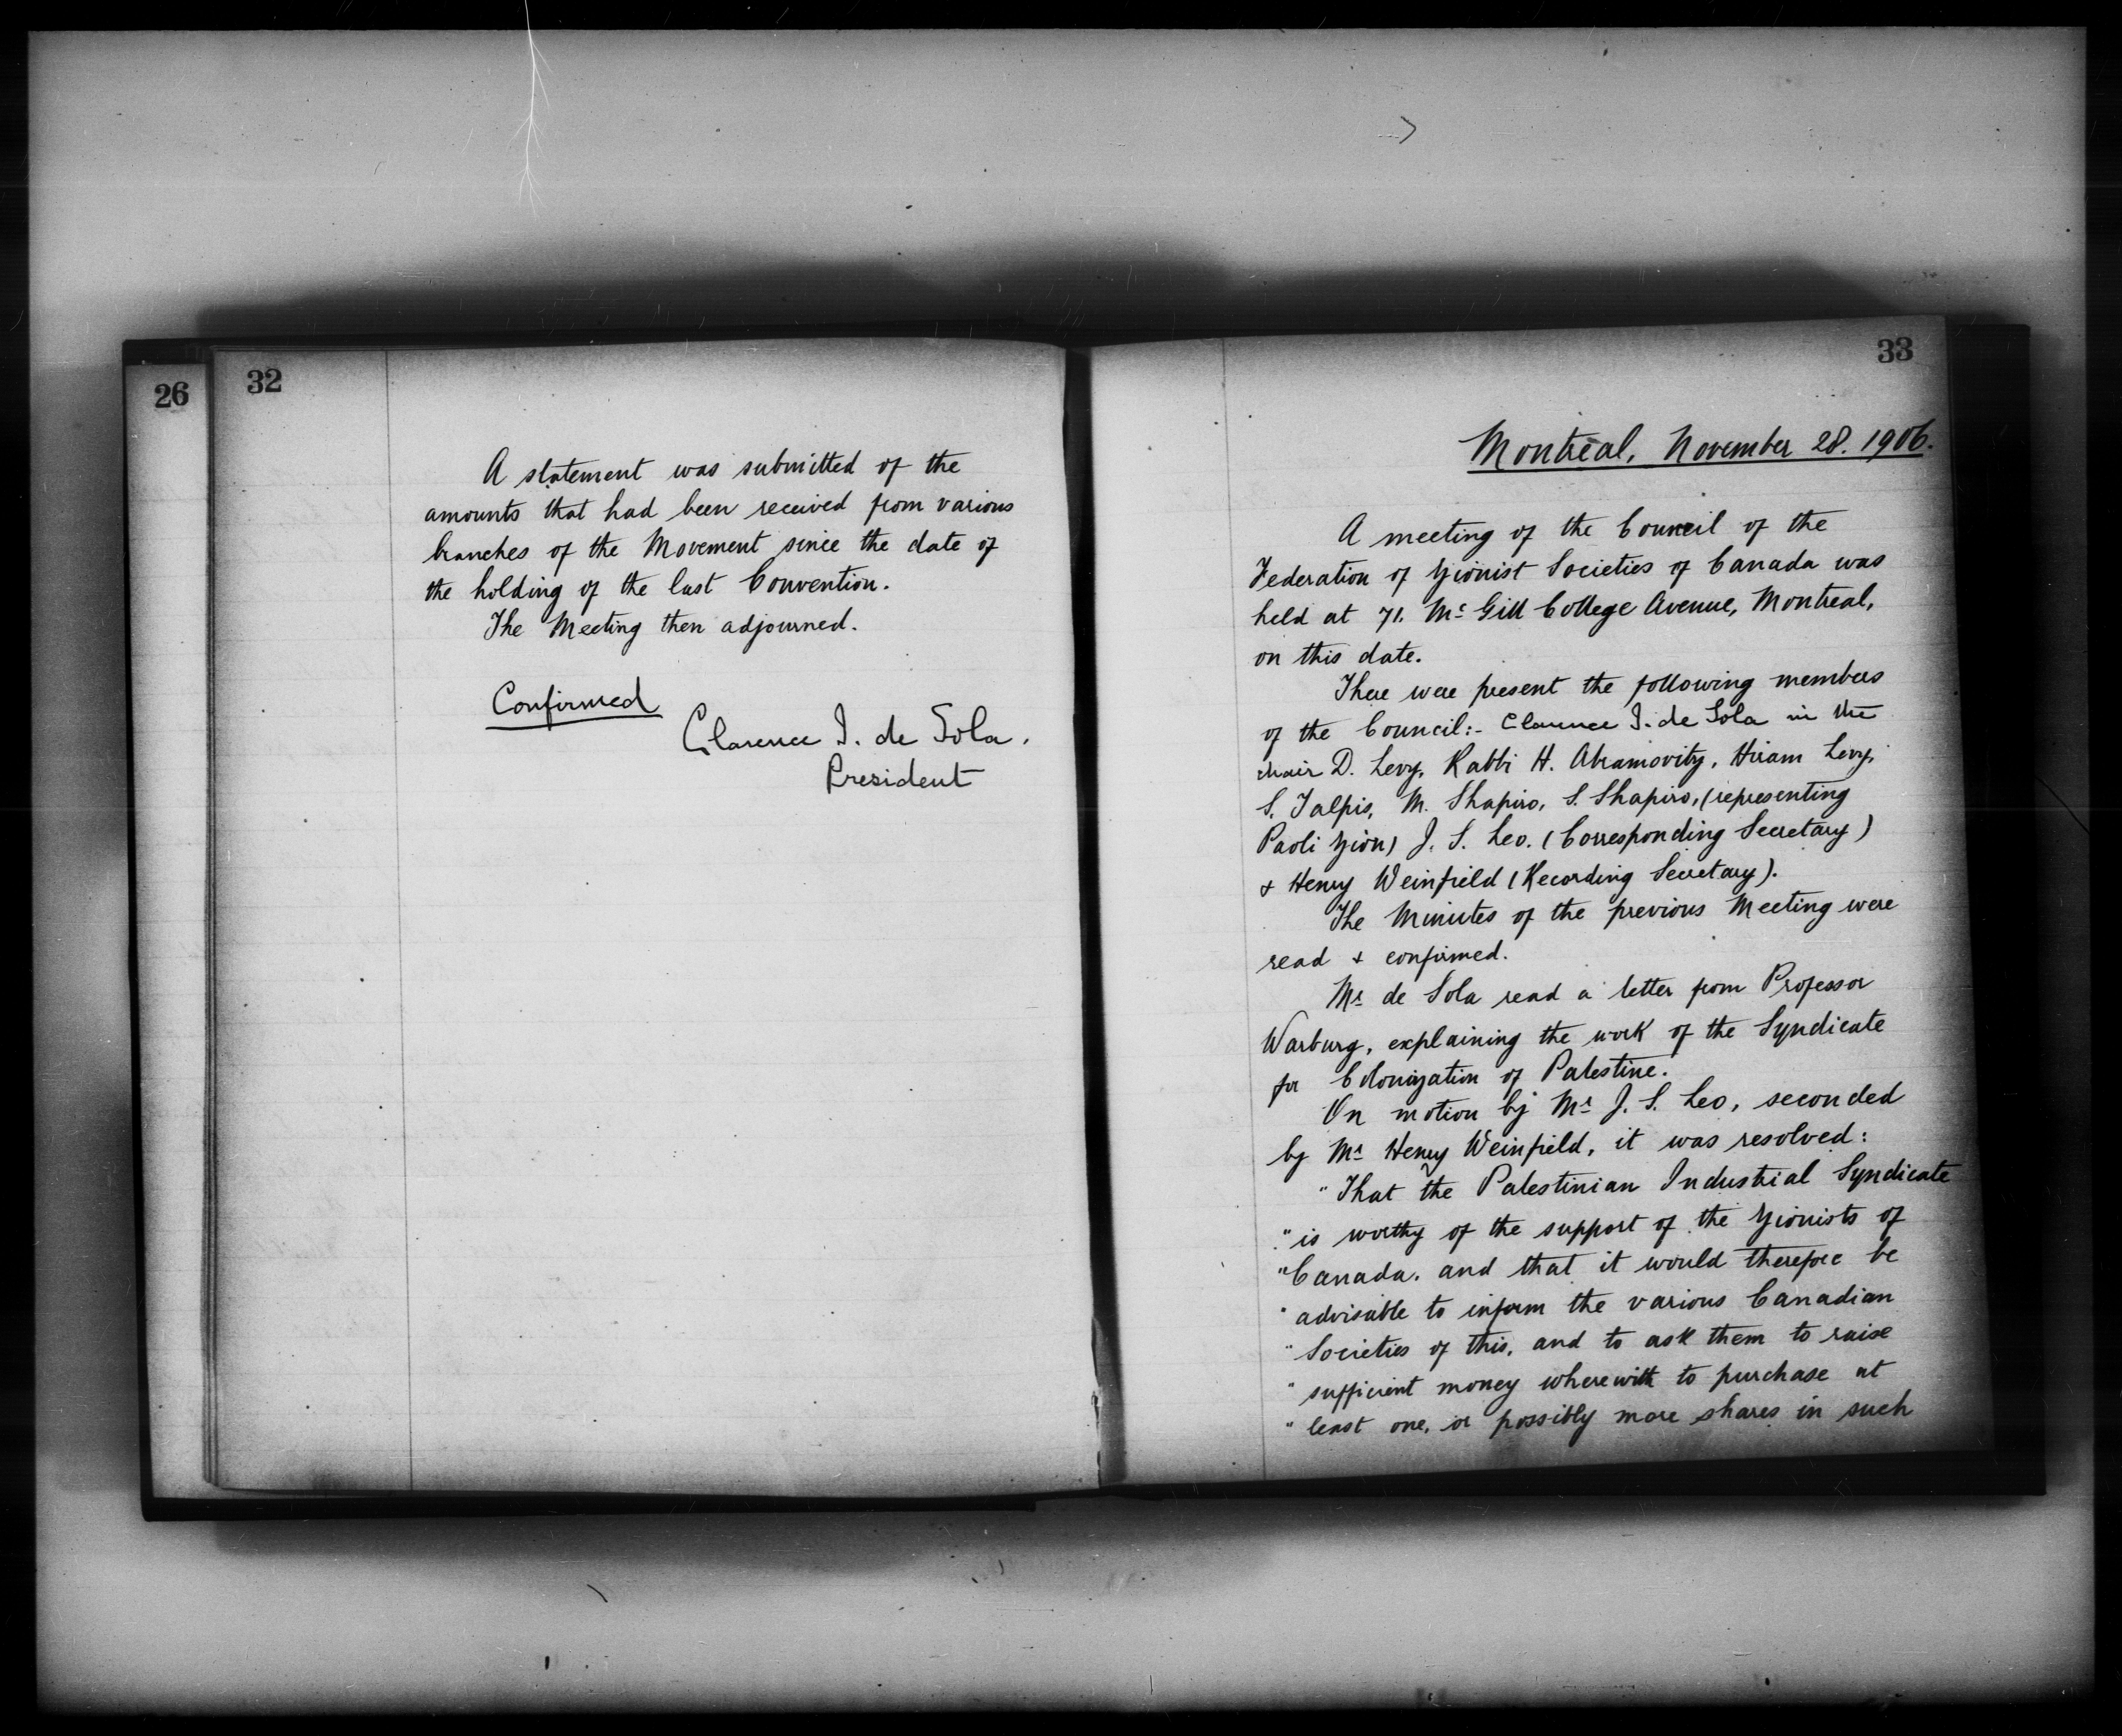 26
32
A statement was submitted of the
amounts that had been received from various
branches of the Movement since the date of
the holding of the last Convention.
The Meeting then adjourned.
Confirmed
Clarence I. de Sola.
President
33
Montreal, November 28. 1906.
A meeting of the Council of the
Federation of Zionist Societies of Canada was
held at 71. Mc Gill College Avenue, Montreal,
on this date.
There were present the following members
of the Council:- Clarence I. de Sola in the
chair D. Levy, Rabbi H. Abramovitz, Hiram Levy,
S. Talpis, M. Shapiro, S. Shapiro, (representing
Paoli Zion) J. S. Leo. (Corresponding Secretary)
& Henry Weinfield (Recording Secretary).
The Minutes of the previous Meeting were
read & confirmed.
Mr de Sola read a letter from Professor
Warburg, explaining the work of the Syndicate
for Colonization of Palestine.
On motion by Mr J. S. Leo, seconded
by Mr Henry Weinfield, it was resolved:
"That the Palestinian Industrial Syndicate
"is worthy of the support of the Zionists of
"Canada. and that it would therefore be
"advisable to inform the various Canadian
"Societies of this, and to ask them to raise
"sufficient money wherewith to purchase at
"least one, or possibly more shares in such